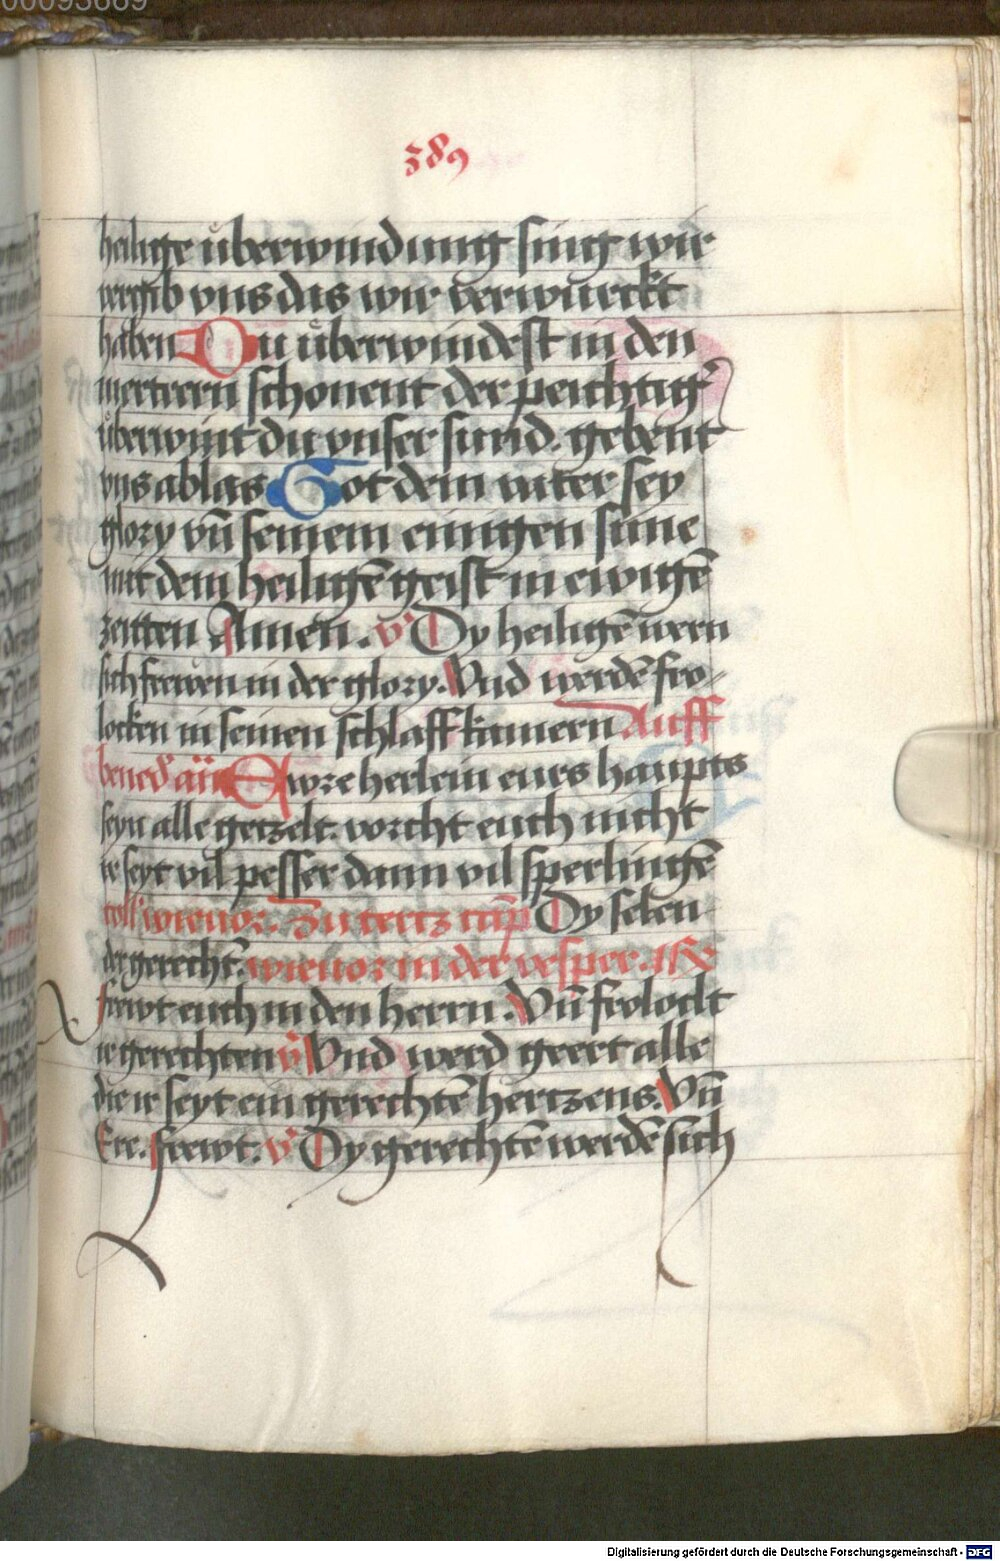 00093889
389
heilige uberwindung sing wir
vergib vns das wir verwurckt
haben Du uberwindest in den
mertrern schonent der peichtig
uberwint du vnser sund. gebent
vns ablas Got dem vater sey
glory vn̄ seinem einigen sune
mit dem heiligē geist in ewigē
zeitten Amen. v Dy heiligē wern
sich frewen in der glory. Vnd werdē fro
locken in seinen schlaffkamern Auff
bened' an̄ Ewre herlein ewrs haupts
seyn alle getzelt. vorcht euch nicht
ir seyt vil pesser dann vil sperlingē
coll' wie vor. Zu tertz Dy selen
der gerechtē. wie vor in der vesper.
frewt euch in den herrn. Vn̄ frolockt
ir gerechten v̄ Vnd werd geert alle
die ir seyt ein gerechtē hertzens. Vn̄
Ere. frewt. v Dy gerechtē werdē sich
Digitalisierung gefördert durch die Deutsche Forschungsgemeinschaft - DFG